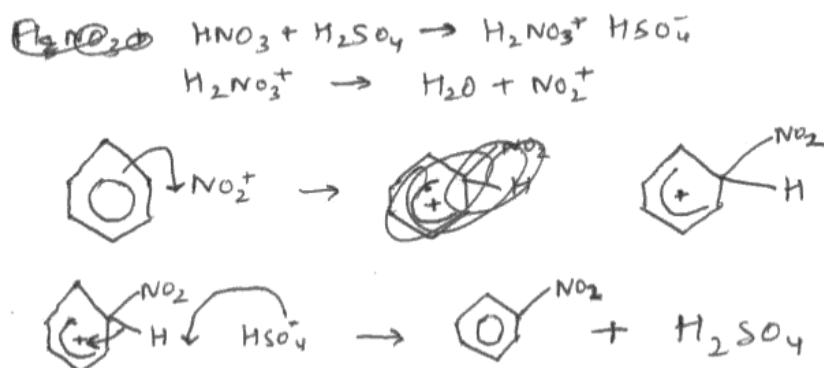 HNO₃ + H₂SO₄ → H₂NO₃⁺ HSO₄⁻
H₂NO₃⁺ → H₂O + NO₂⁺
NO₂⁺ → + NO₂ H + NO₂ H
+ NO₂ H HSO₄⁻ → NO₂ + H₂SO₄